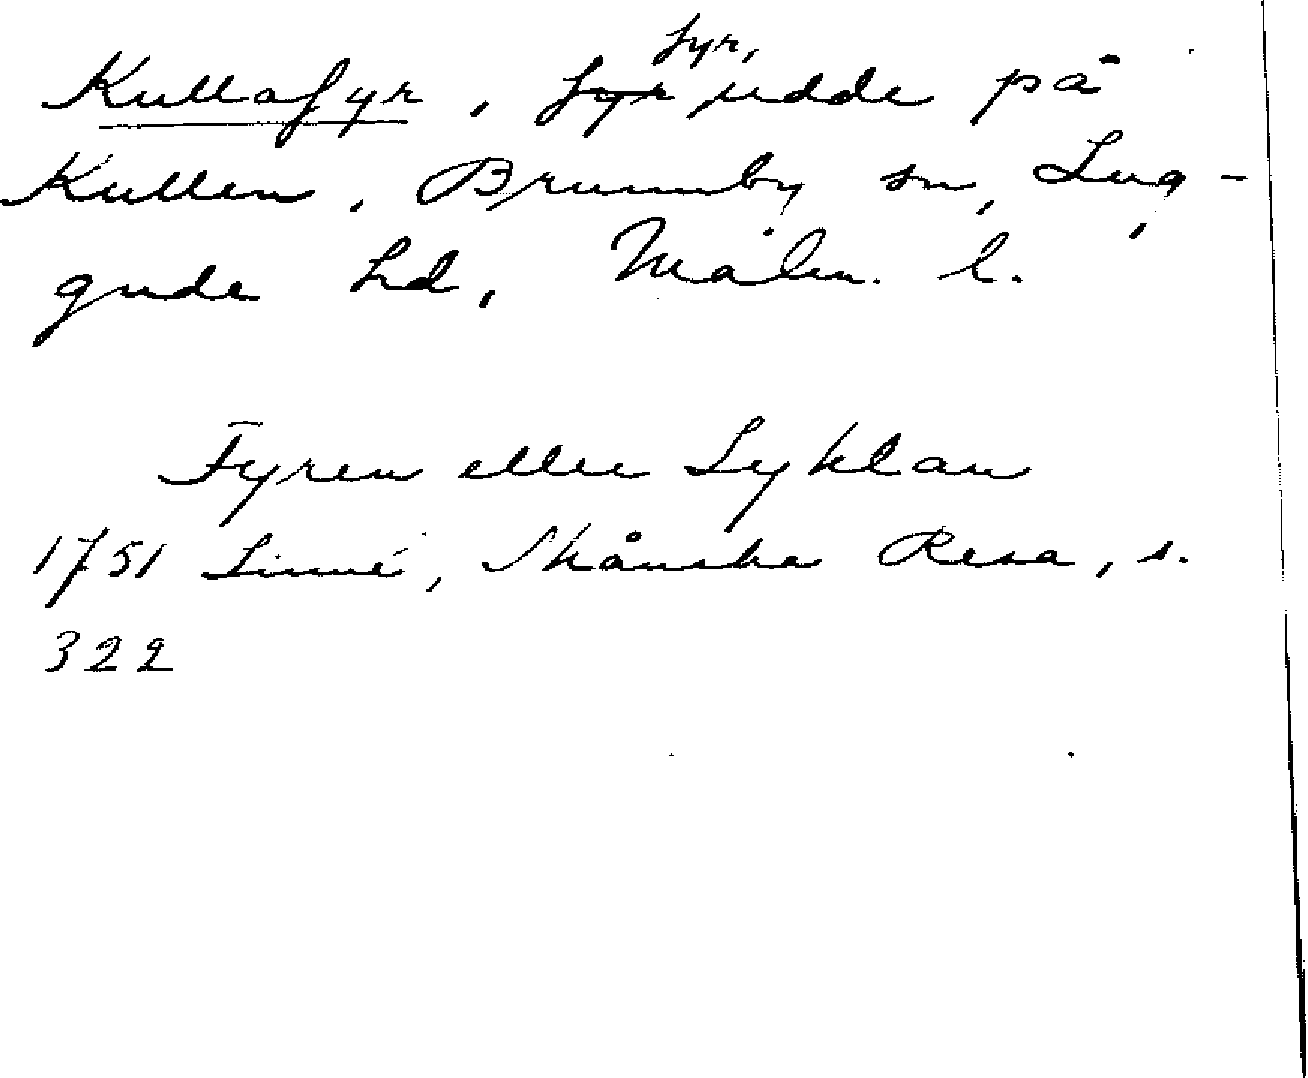 Kullafyr, fyr, udde på
Kullen, Brunnby sn, Lug-
gude hd, Malm. l.
Fyren eller Lyktan
1751 Linné, Skånska Resa, s.
322